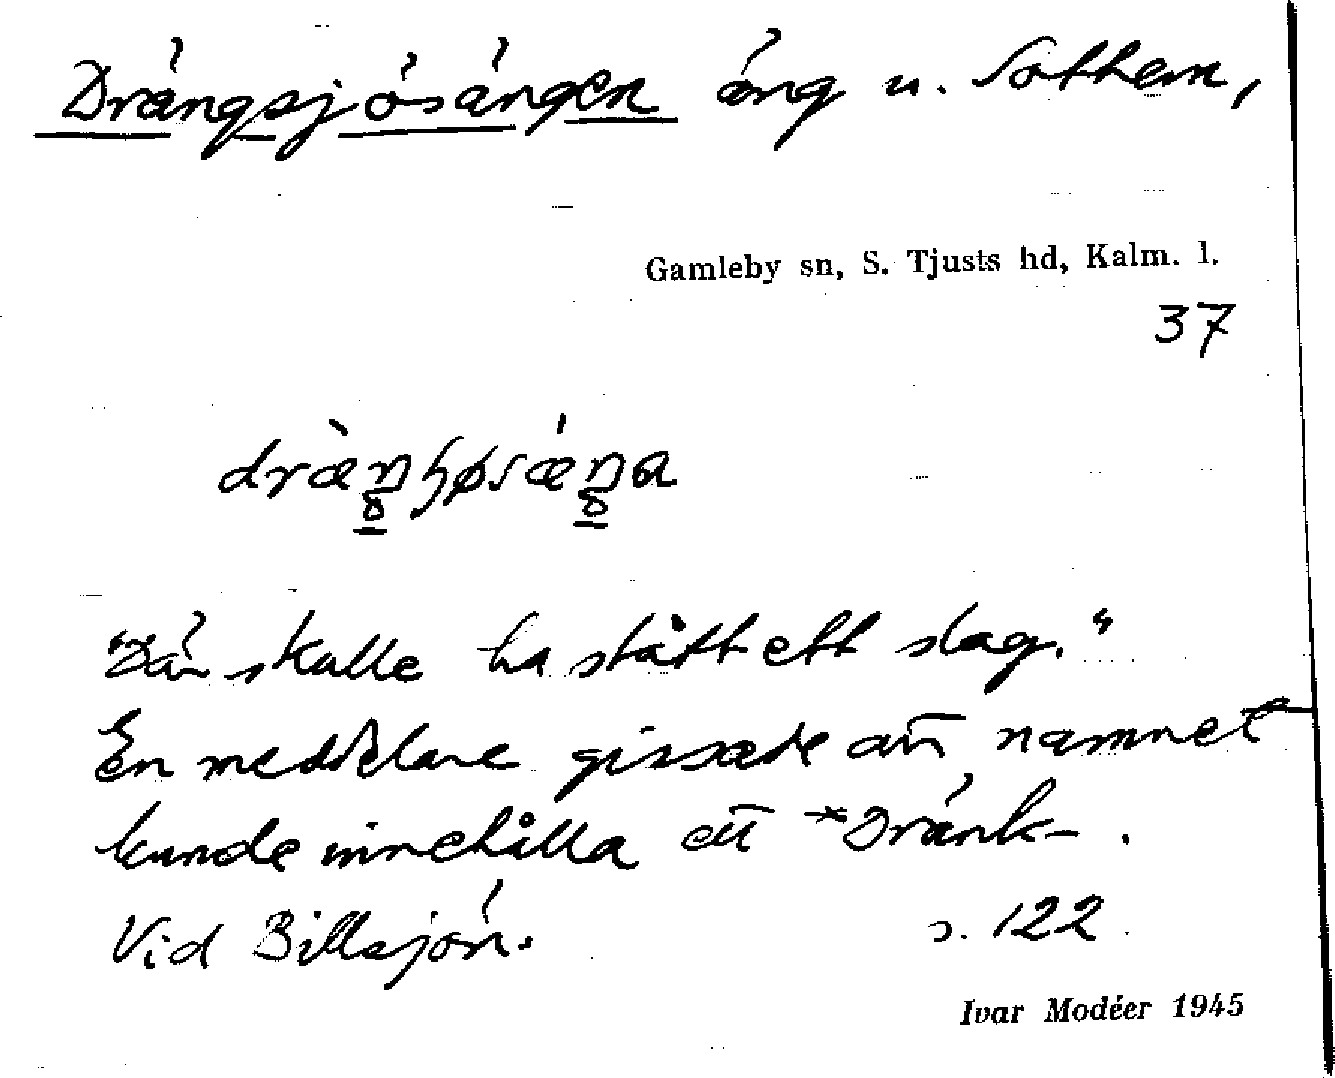 Drängsjösängen äng u. Sothem,
Gamleby sn, S. Tjusts hd, Kalm. l.
37
"Där skulle ha stått ett slag."
En meddelare gissade att namnet
kunde innehålla ett *Dränk-.
Vid Billsjön. s. 122
Ivar Modéer 1945